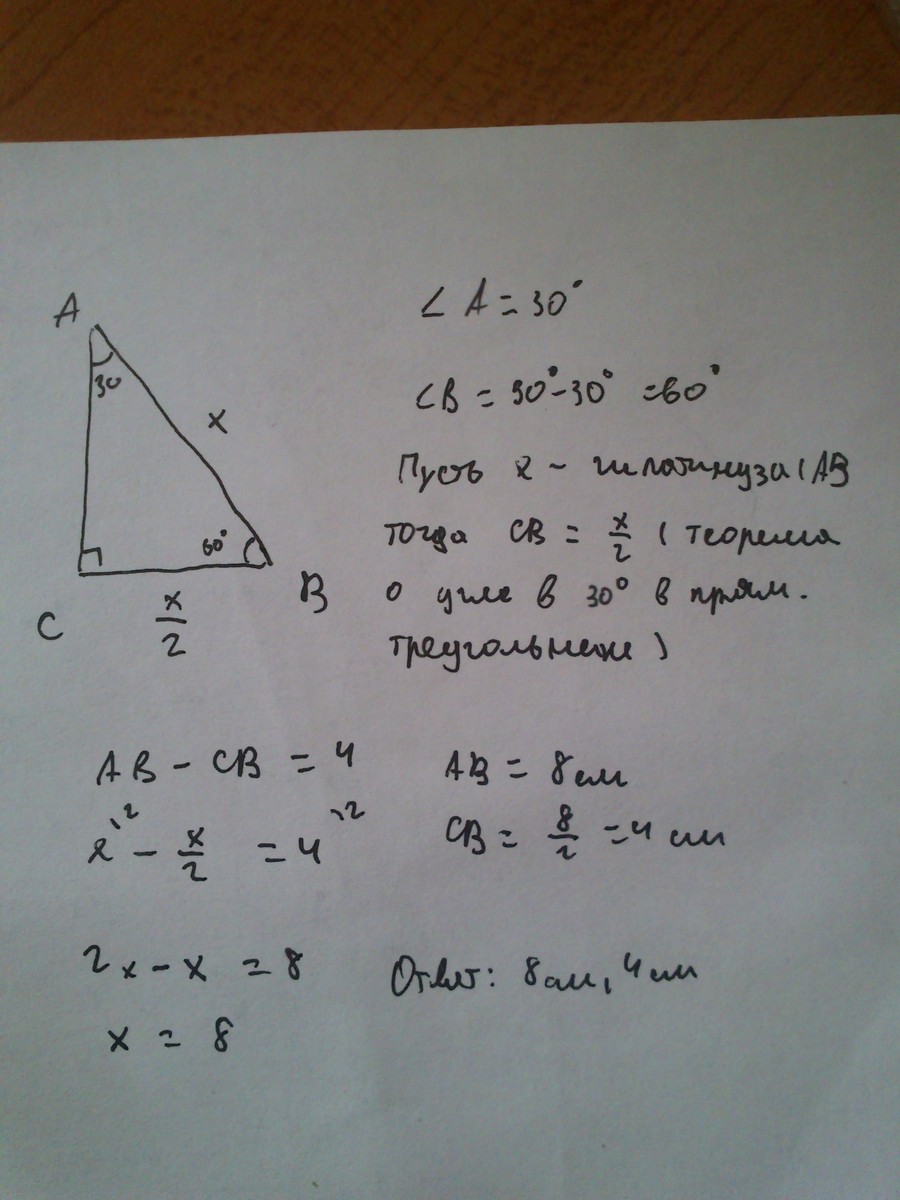 A
30
x
60°
C
x/2
B
∠A = 30°
∠B = 90° - 30° = 60°
Пусть x - гипотинуза (AB
тогда CB = x/2 (теорема
о угле в 30° в прям.
треугольнике)
AB - CB = 4
x^{\2} - x/2 = 4^{\2}
2x - x = 8
x = 8
AB = 8 см
CB = 8/2 = 4 см
Ответ: 8 см, 4 см